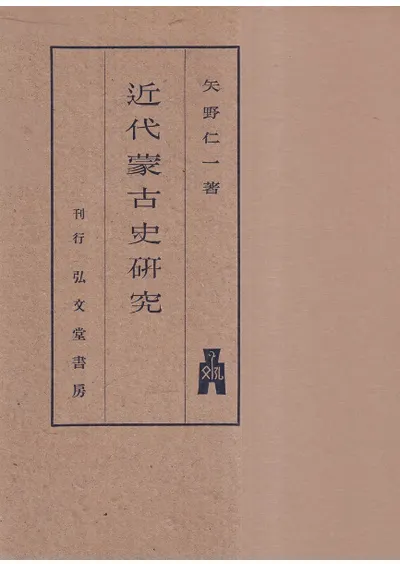 矢野仁一著
近代蒙古史研究
刊行 弘文堂書房